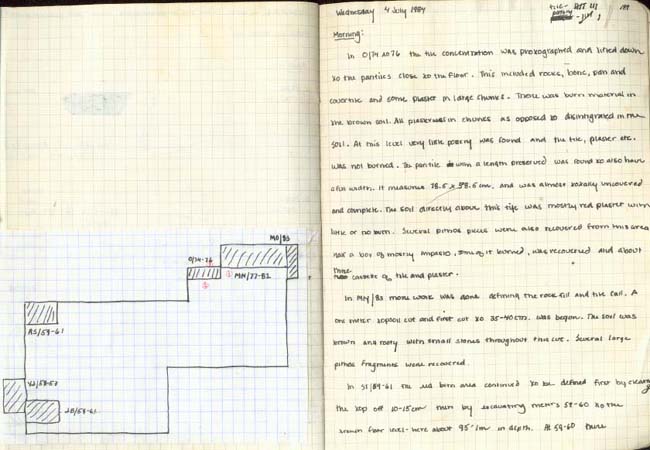 MO/83
O/74-76
MN/77-82
/59-61
/59-61
Wednesday 4 July 1984
tile-
pottery
Morning:
In O/74 to 76 the tile concentration was photographed and lifted down
to the pantiles close to the floor. This included rocks, bone, pan and
cover tile and some plaster in large chunks. There was burn material in
the brown soil. All plaster was in chunks as opposed to disintegrated in the
soil. At this level very little pottery was found and the tile, plaster etc.
was not burned. The pantile with a length preserved was found to also have
a full width. It measures 78.5 x 58.5 cm. and was almost totally uncovered
and complete. The soil directly above this tile was mostly red plaster with
little or no burn. Several pithos pieces were also recovered from this area
Half a box of mostly impasto, some of it burned, was recovered and about
three cassette of tile and plaster.
In MN/83 more work was done defining the rock fill and tile fall. A
one meter topsoil cut and first cut to 35-40cm. was begun. The soil was
brown and rooty with small stones throughout this cut. Several large
pithos fragments were recovered.
In /59-61 the red burn area continued to be defined first by cleaning
the top off 10-15cm then by excavating meters 59-60 to the
known floor level - here about 95-1m in depth. At 59-60 there